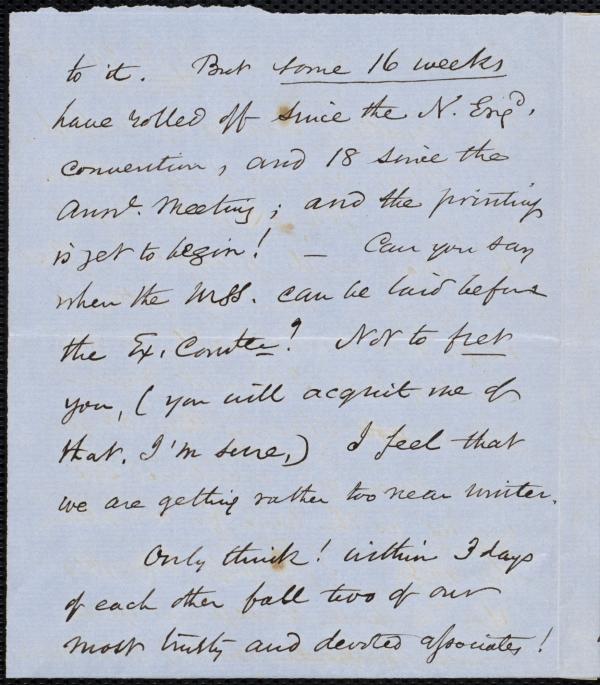 to it. But some 16 weeks
have rolled off since the N. Engd.
convention, and 18 since the
Annl. Meeting; and the printing
is yet to begin! — Can you say
when the MSS. can be laid before
the Ex. Comtee? Not to fret
you, (you will acquit me of
that, I'm sure,) I feel that
we are getting rather too near winter.
Only think! within 3 days
of each other fall two of our
most trusty and devoted associates!